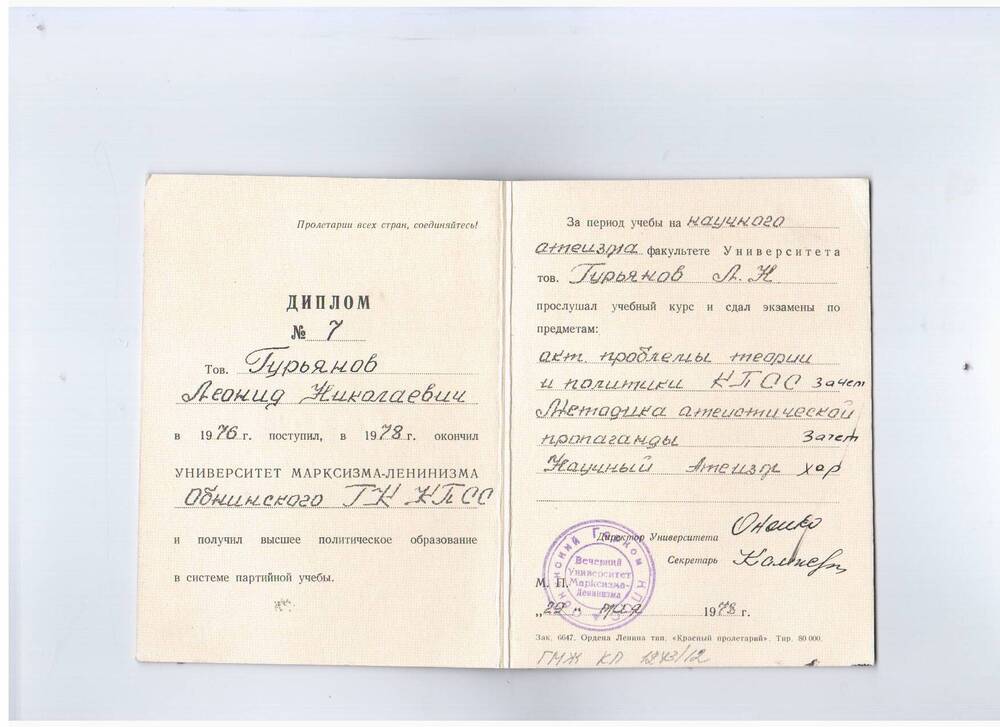 Пролетарии всех стран, соединяйтесь!
ДИПЛОМ
№ 7
Тов. Гурьянов
Леонид Николаевич
в 1976 г. поступил, в 1978 г. окончил
УНИВЕРСИТЕТ МАРКСИЗМА-ЛЕНИНИЗМА
Обнинского ГК КПСС
и получил высшее политическое образование
в системе партийной учебы.
За период учебы на научного
атеизма факультете Университета
тов. Гурьянов Л. Н
прослушал учебный курс и сдал экзамены по
предметам:
акт. проблемы теории
и политики КПСС зачет
Методика атеистической
пропаганды Зачет
Научный Атеизм хор
Директор Университета
Секретарь
Обнинский Горком КПСС
Вечерний
Университет
Марксизма-
Ленинизма
М. П.
„29" мая 1978 г.
Зак. 6647. Ордена Ленина тип. «Красный пролетарий». Тир. 80 000.
ГМЖ КП 1243/12